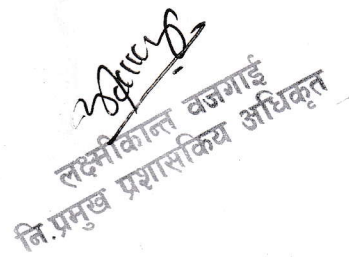 लक्ष्मीकान्त वजगाई
नि.प्रमुख प्रशासकिय अधिकृत